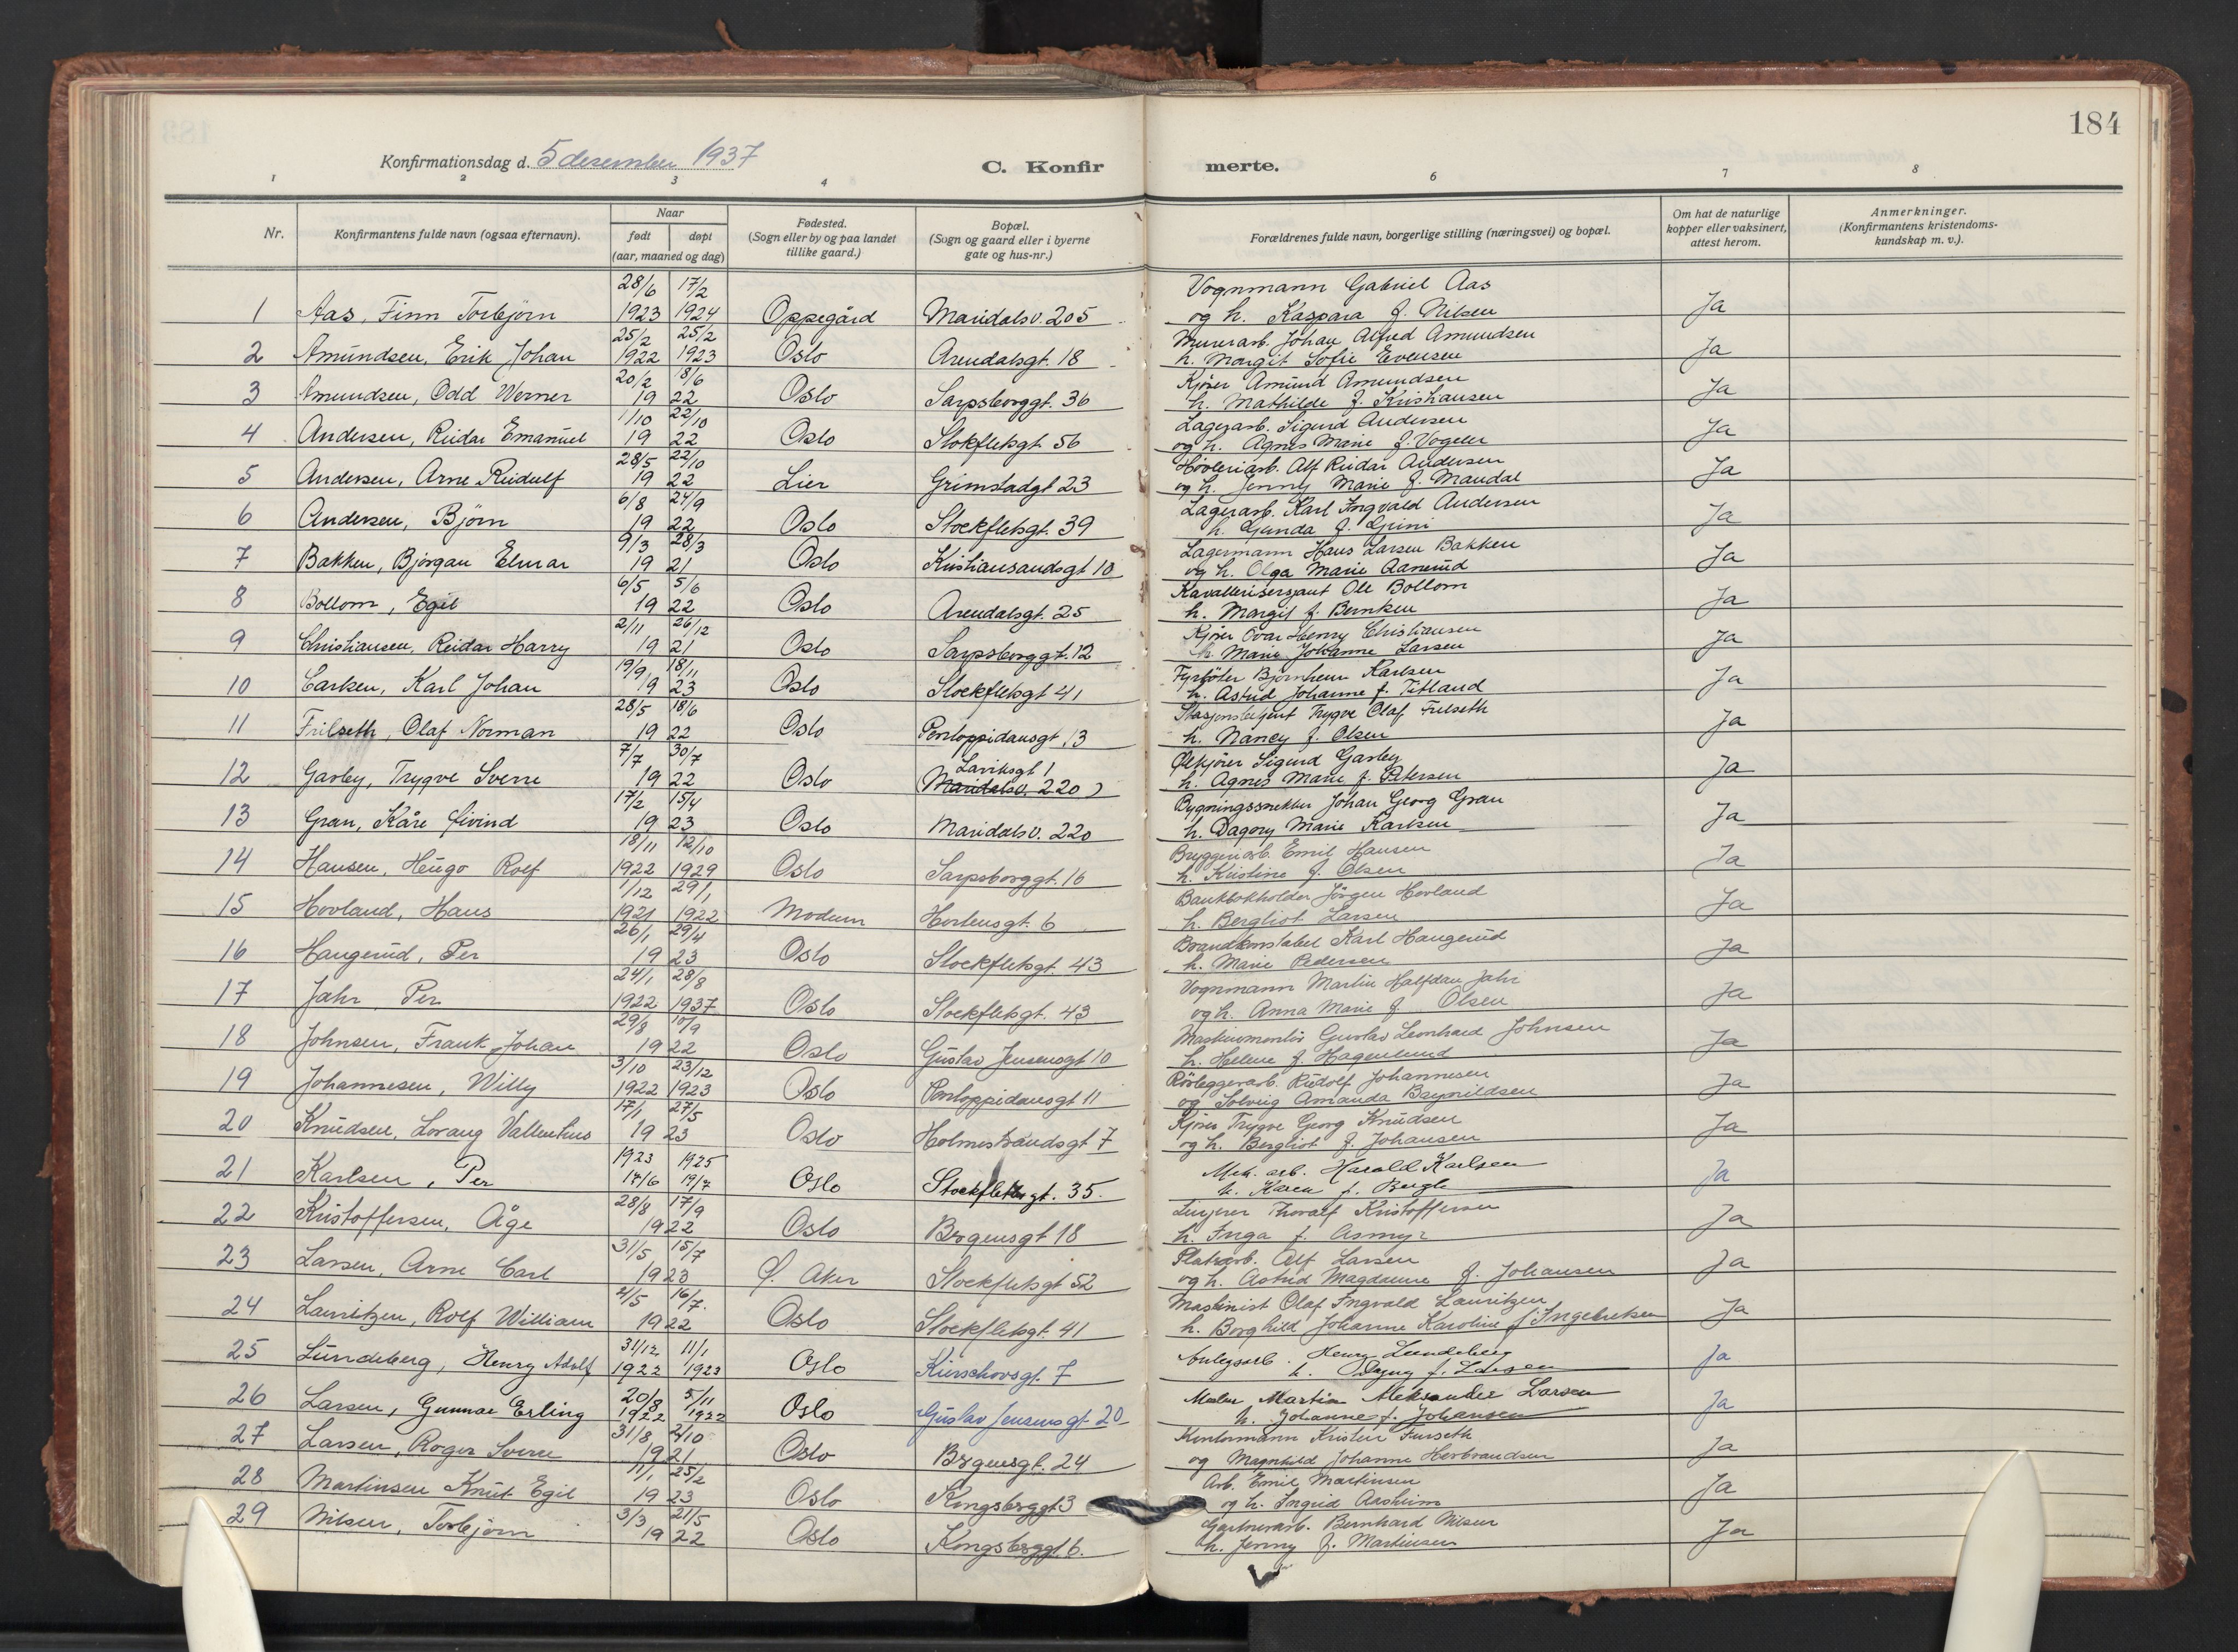 184
Konfirmationsdag d. 5 desember 1937
C. Konfirmerte.
1 2 3 4 6 7 8
Nr. Konfirmantens fulde navn (ogsaa efternavn). Naar født døpt (aar, maaned og dag) Fødested. (Sogn eller by og paa landet tillike gaard.) Bopæl. (Sogn og gaard eller i byerne gate og hus-nr.) Forældrenes fulde navn, borgerlige stilling (næringsvei) og bopæl. Om hat de naturlige kopper eller vaksinert, attest herom. Anmerkninger. (Konfirmantens kristendoms-kundskap m. v.).
28/6 17/2 Vognmann Gabriel Aas
1 Aas, Finn Torbjörn 1923 1924 Oppegård Maridalsv. 205 og h. Kaspara f. Nilsen Ja
25/2 25/2 Murerarb. Johan Alfred Amundsen
2 Amundsen, Erik Johan 1922 1923 Oslo Arendalsgt. 18 h. Margit Sofie Evensen Ja
20/2 18/6 Kjörer Amund Amundsen
3 Amundsen, Odd Werner 1922 Oslo Sarpsborggt. 36 h. Mathilde f. Kristiansen Ja
1/10 22/10 Lagerarb. Sigurd Andersen
4 Andersen, Reidar Emanuel 1922 Oslo Stokfletsgt. 56 og h. Agnes Marie f. Vogeler Ja
28/5 22/10 Høvleriarb. Alf Reidar Andersen
5 Andersen, Arne Reidulf 1922 Lier Grimstadgt 23 og h. Jenny Marie f. Mandal Ja
6/8 24/9 Lagerarb. Karl Ingvald Andersen
6 Andersen, Björn 1922 Oslo Stockfletsgt. 39 h. Gunda f. Grini Ja
9/3 28/3 Lagermann Hans Larsen Bakken
7 Bakken, Bjorgan Elmar 1921 Oslo Kristiansandsgt 10 og h. Olga Marie Aanerud Ja
6/5 5/6 Kavallerisersjant Ole Bollom
8 Bollom, Egil 1922 Oslo Arendalsgt. 25 h. Margit f. Bernksen Ja
2/11 26/12 Kjörer Ovar Henry Christiansen
9 Christiansen, Reidar Harry 1921 Oslo Sarpsborggt. 12 h. Marie Johanne Larsen Ja
19/9 18/11 Fyrböter Bjornheim Karlsen
10 Carlsen, Karl Johan 1923 Oslo Stockfletsgt 41 h. Astrid Johanne f. Titland Ja
28/5 18/6 Stasjonsbetjent Trygve Olaf Frilseth
11 Frilseth, Olaf Norman 1922 Oslo Pontoppidansgt 13 h. Nancy f. Olsen Ja
7/7 30/7 Larviksgt 1 Ølkjörer Sigurd Gasley
12 Gasley, Trygve Sverre 1922 Oslo Maridalsv. 220) h. Agnes Marie f. Petersen Ja
17/2 15/4 Bygningssnekker Johan Georg Gran
13 Gran, Kåre Eivind 1923 Oslo Maridalsv. 220 h. Dagny Marie Karlsen Ja
18/11 12/10 Bryggeriarb. Emil Hansen
14 Hansen, Heugo Rolf 1922 1929 Oslo Sarpsborggt. 16 h. Kristine f. Olsen Ja
1/12 29/1 Bankbokholder Jörgen Hovland
15 Hovland, Hans 1921 1922 Modum Hortensgt. 6 h. Bergliot Larsen Ja
26/1 29/4 Brandkonstabel Karl Haugerud
16 Haugerud, Per 1923 Oslo Stockfletsgt. 43 h. Marie Pedersen Ja
24/1 28/8 Vognmann Martin Halfdan Jahr
17 Jahr, Per 1922 1937 Oslo Stockfletsgt. 43 og h. Anna Marie f. Olsen Ja
29/8 10/9 Maskinmontör Gustav Leonhard Johnsen
18 Johnsen, Frank Johan 1922 Oslo Gustav Jensensgt 10 h. Helene f. Hagenlund Ja
3/10 23/12 Rørleggerarb. Rudolf Johannesen
19 Johannesen, Willy 1922 1923 Oslo Pontoppidansgt 11 og Solveig Amanda Brynildsen Ja
17/1 27/5 Kjörer Trygve Georg Knudsen
20 Knudsen, Lorang Vallentius 1923 Oslo Holmestrandsgt 7 og h. Bergliot f. Johansen Ja
1923 1925 Mek. arb. Harald Karlsen
21 Karlsen, Per 17/6 19/7 Oslo Stockfletsgt. 35. h. Karen f. Bergli Ja
28/8 17/9 Linjerer Thoralf Kristoffersen
22 Kristoffersen, Åge 1922 Oslo Bergensgt 18 h. Inga f. Asmyr Ja
31/5 15/7 Platearb. Alf Larsen
23 Larsen, Arne Carl 1923 Ø. Aker Stockfletsgt 52 og h. Astrid Magdanne f. Johansen Ja
2/5 16/7. Maskinist Olaf Ingvald Lauritzen
24 Lauritzen, Rolf William 1922 Oslo Stockfletsgt. 41 h. Borghild Johanne Karoline f. Ingebretsen Ja
31/12 11/1 Anlegsarb. Henry Lundeberg
25 Lundeberg, Henry Adolf 1922 1923 Oslo Kierschowsgt. 7 h. Dagny f. Larsen Ja
20/8 5/11 Maler Martin Aleksander Larsen
26 Larsen, Gunnar Erling 1922 1922 Oslo Gustav Jensensgt. 20 h. Johanne f. Johansen Ja
31/8 2/10 Kontormann Kristen Furseth
27 Larsen, Roger Sverre 1921 Oslo Bergensgt. 24 og Magnhild Johanne Herbrandsen Ja
11/1 25/2 Arb. Emil Martinsen
28 Martinsen Knut Egil 1923 Oslo Kongsberggt 3 og h. Ingrid Aasheim Ja
3/3 21/5 Gartnerarb. Bernhard Nilsen
29 Nilsen, Torbjörn 1922 Oslo Kongsberggt. 6. h. Jenny f. Martinsen Ja